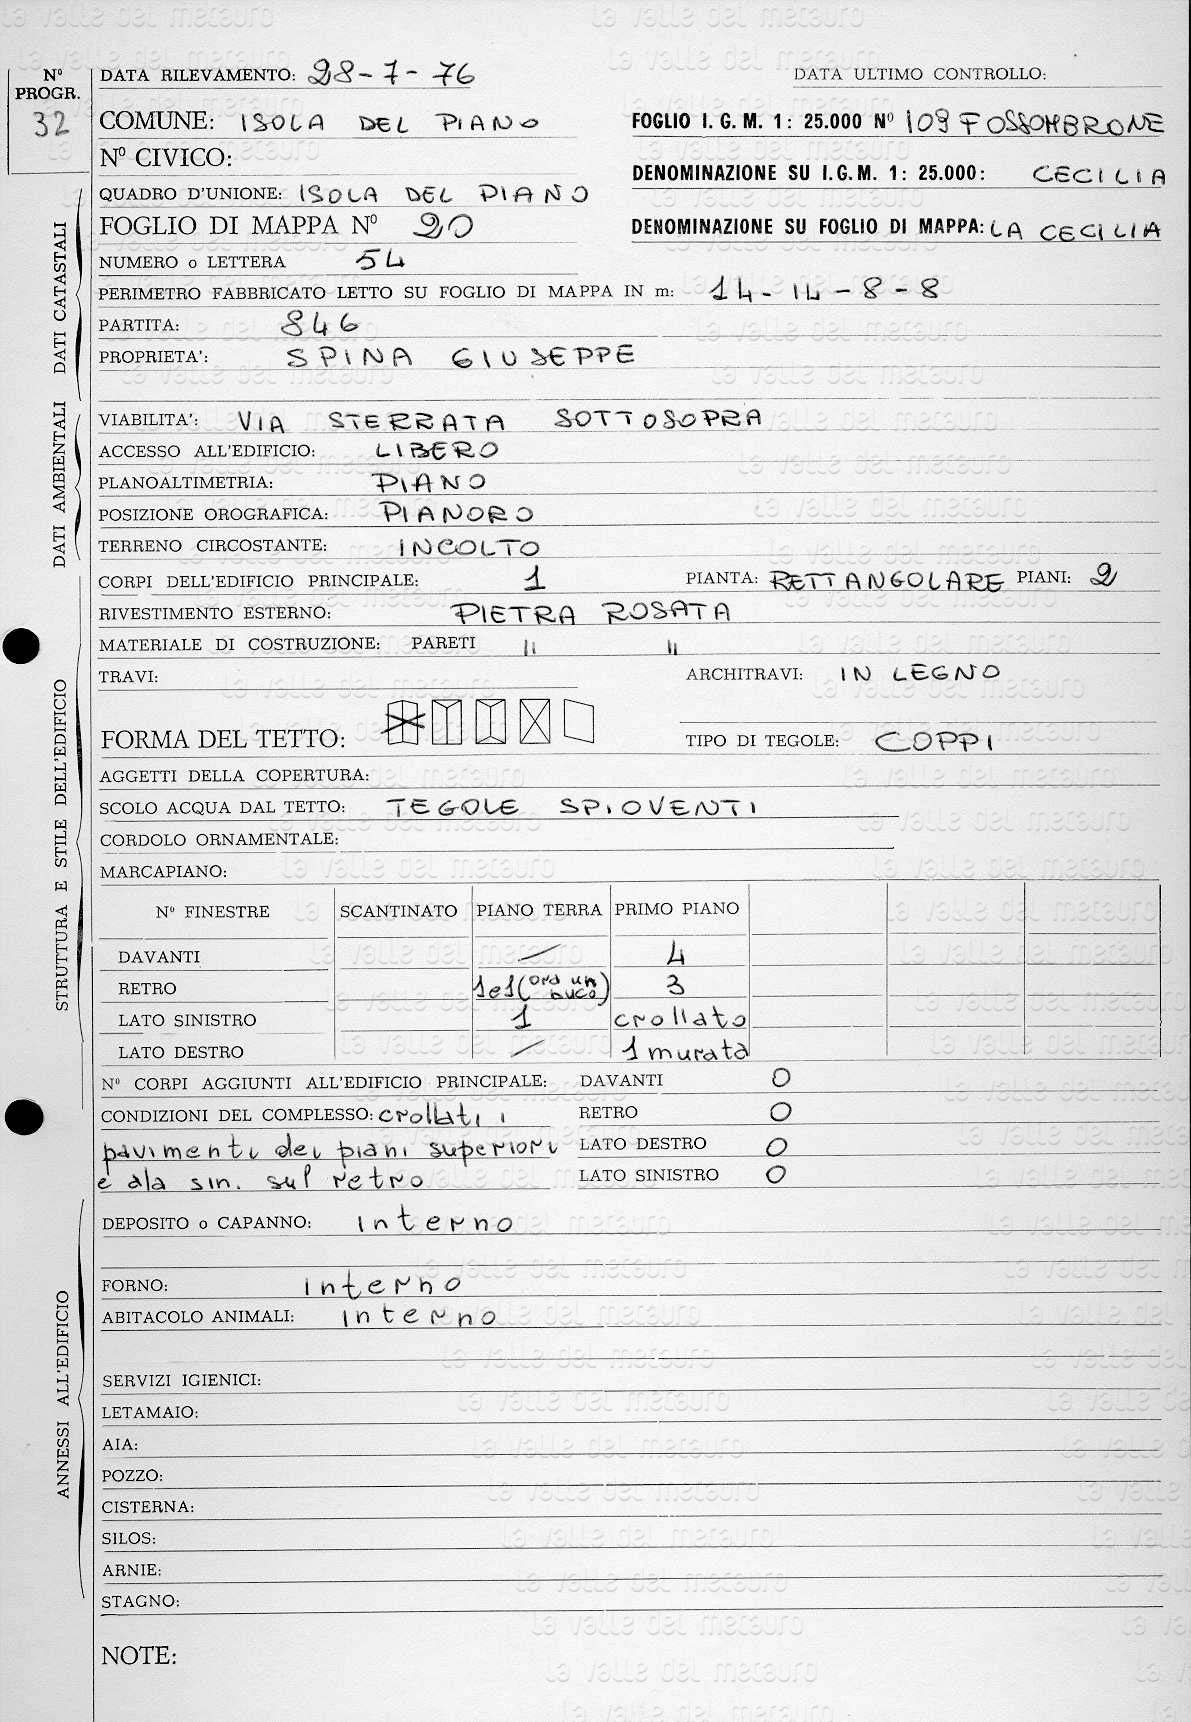 Nº PROGR. 32
DATA RILEVAMENTO: 28-7-76
DATA ULTIMO CONTROLLO:
COMUNE: ISOLA DEL PIANO
FOGLIO I. G. M. 1: 25.000 Nº 109 FOSSOMBRONE
Nº CIVICO:
DENOMINAZIONE SU I.G.M. 1: 25.000: CECILIA
QUADRO D'UNIONE: ISOLA DEL PIANO
FOGLIO DI MAPPA Nº 20
DENOMINAZIONE SU FOGLIO DI MAPPA: LA CECILIA
DATI CATASTALI
NUMERO o LETTERA 54
PERIMETRO FABBRICATO LETTO SU FOGLIO DI MAPPA IN m: 14-14-8-8
PARTITA: 846
PROPRIETA': SPINA GIUSEPPE
DATI AMBIENTALI
VIABILITA': VIA STERRATA SOTTOSOPRA
ACCESSO ALL'EDIFICIO: LIBERO
PLANOALTIMETRIA: PIANO
POSIZIONE OROGRAFICA: PIANORO
TERRENO CIRCOSTANTE: INCOLTO
STRUTTURA E STILE DELL'EDIFICIO
CORPI DELL'EDIFICIO PRINCIPALE: 1 PIANTA: RETTANGOLARE PIANI: 2
RIVESTIMENTO ESTERNO: PIETRA ROSATA
MATERIALE DI COSTRUZIONE: PARETI " "
TRAVI: ARCHITRAVI: IN LEGNO
FORMA DEL TETTO: TIPO DI TEGOLE: COPPI
AGGETTI DELLA COPERTURA:
SCOLO ACQUA DAL TETTO: TEGOLE SPIOVENTI
CORDOLO ORNAMENTALE:
MARCAPIANO:
Nº FINESTRE SCANTINATO PIANO TERRA PRIMO PIANO
DAVANTI — 4
RETRO 1e1 (ora un buco) 3
LATO SINISTRO 1 crollato
LATO DESTRO — 1 murata
Nº CORPI AGGIUNTI ALL'EDIFICIO PRINCIPALE: DAVANTI 0
CONDIZIONI DEL COMPLESSO: crollati i RETRO 0
pavimenti dei piani superiori LATO DESTRO 0
e ala sin. sul retro LATO SINISTRO 0
ANNESSI ALL'EDIFICIO
DEPOSITO o CAPANNO: interno
FORNO: interno
ABITACOLO ANIMALI: interno
SERVIZI IGIENICI:
LETAMAIO:
AIA:
POZZO:
CISTERNA:
SILOS:
ARNIE:
STAGNO:
NOTE:
la valle del metauro